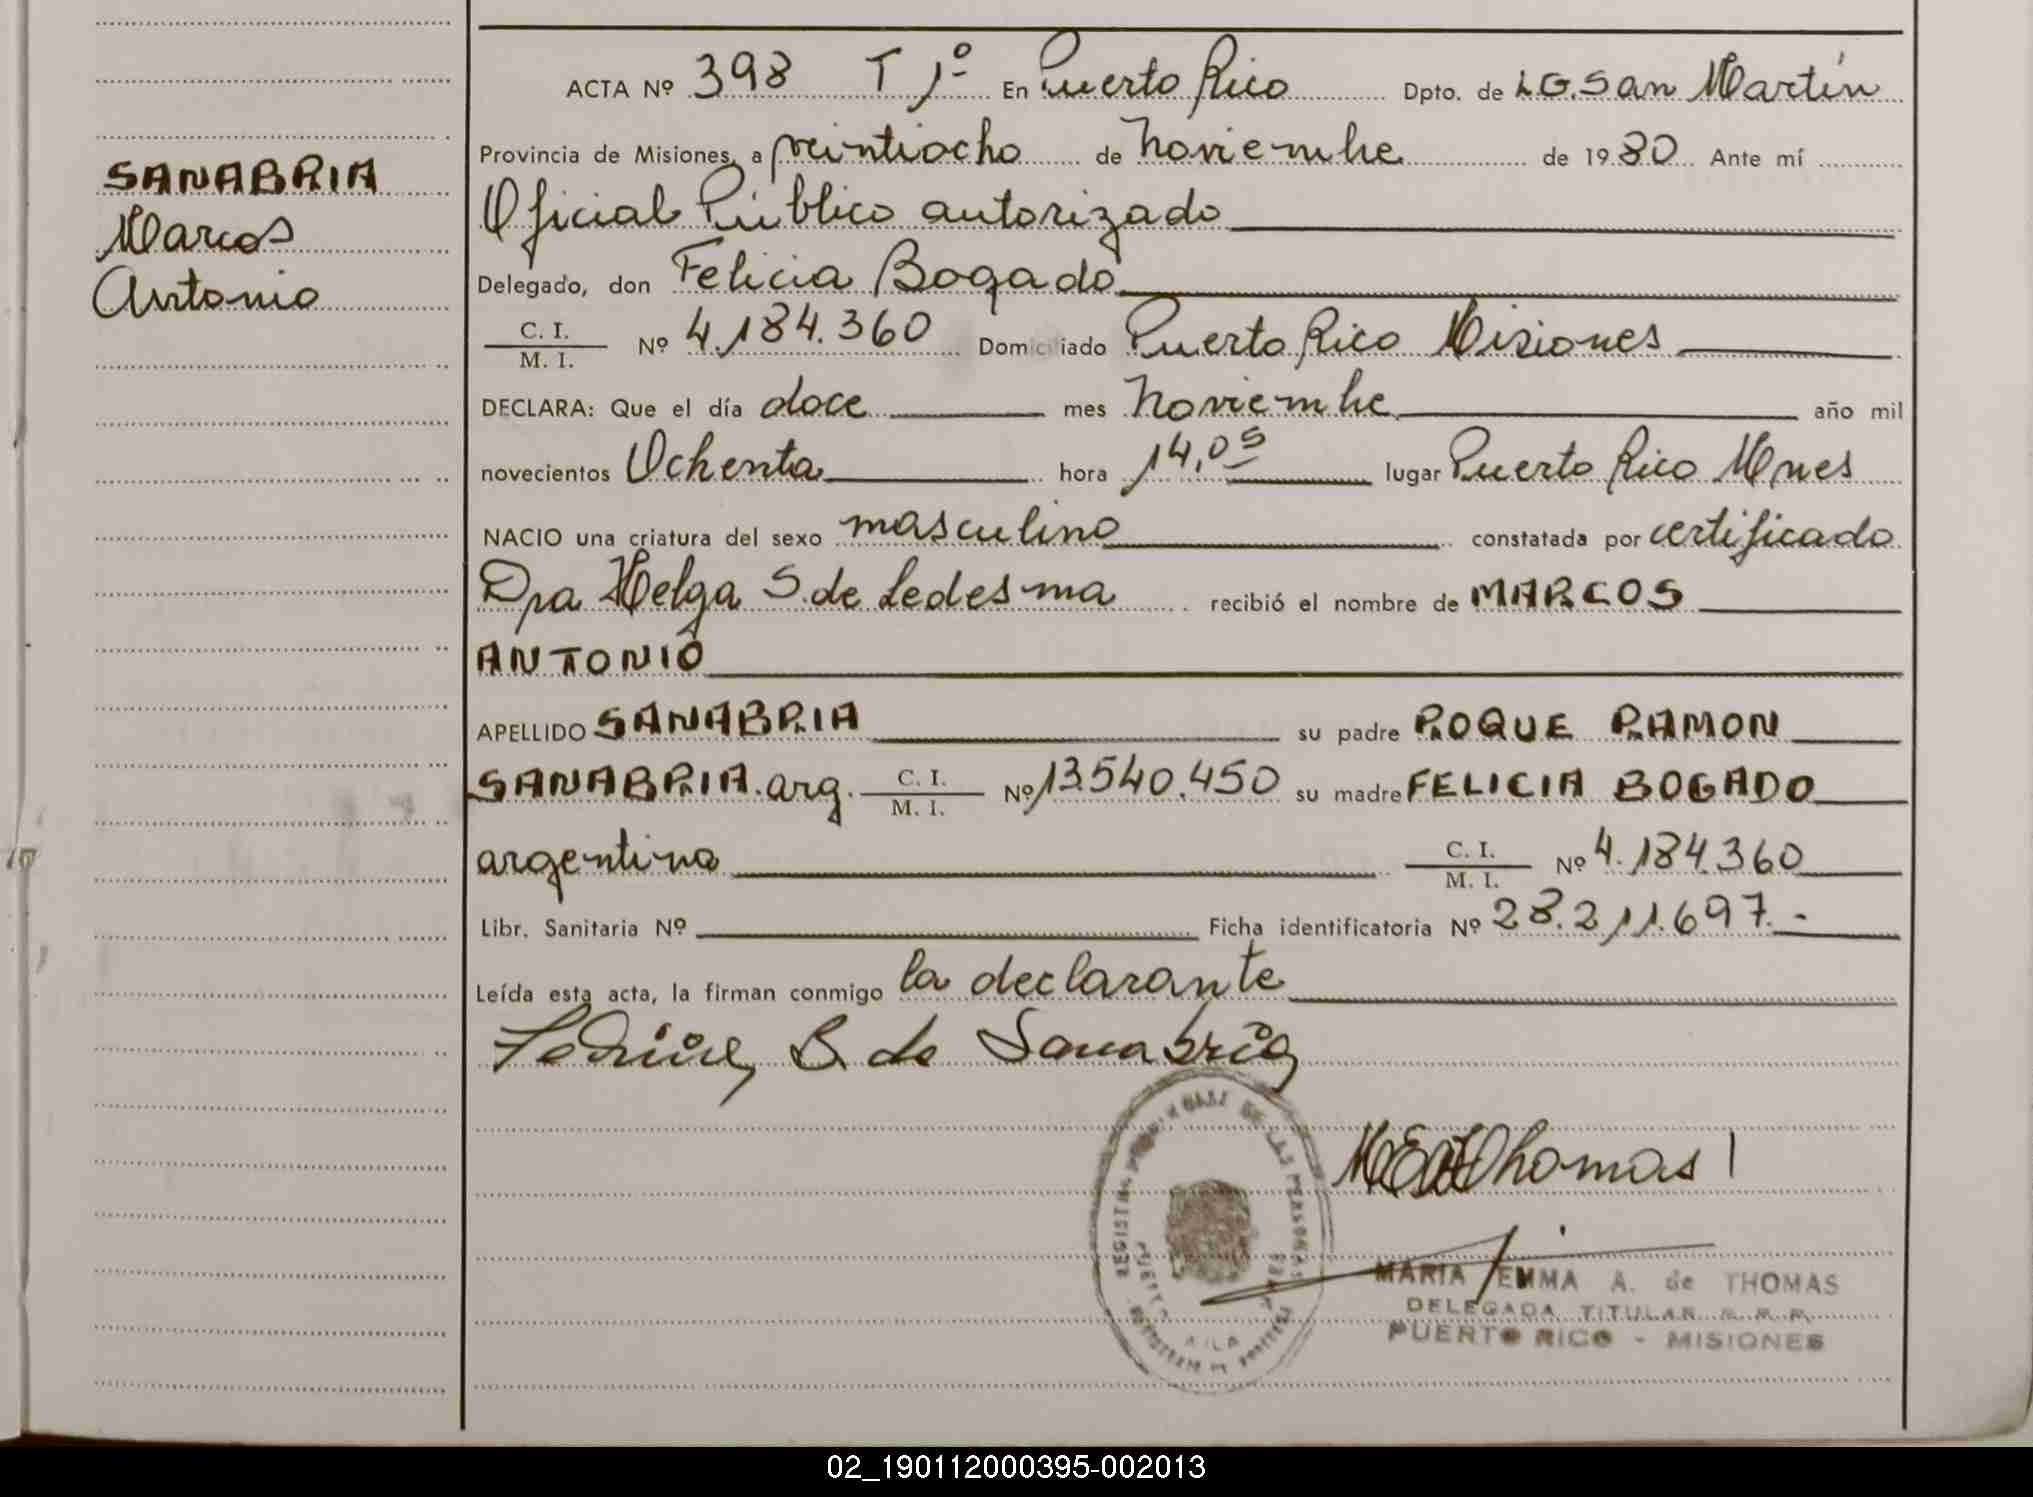 SANABRIA
Marcos
Antonio
ACTA Nº 398 T 1º En Puerto Rico Dpto. de L.G. San Martín
Provincia de Misiones, a veintiocho de Noviembre de 1980 Ante mí
Oficial Público autorizado
Delegado, don Felicia Bogado
C. I.
M. I. Nº 4.184.360 Domiciliado Puerto Rico Misiones
DECLARA: Que el día doce mes Noviembre año mil
novecientos Ochenta hora 14,05 lugar Puerto Rico Mnes
NACIO una criatura del sexo masculino constatada por certificado
Dra Helga S. de Ledesma recibió el nombre de MARCOS
ANTONIO
APELLIDO SANABRIA su padre ROQUE RAMON
SANABRIA. arg. C. I. M. I. Nº 13.540.450 su madre FELICIA BOGADO
argentina C. I. M. I. Nº 4.184.360
Libr. Sanitaria Nº Ficha identificatoria Nº 28.211.697.-
Leída esta acta, la firman conmigo la declarante
B. de Sanabria
Thomas
REGISTRO DE LAS PERSONAS
MARIA EMMA A. de THOMAS
DELEGADA TITULAR
PUERTO RICO - MISIONES
02_190112000395-002013